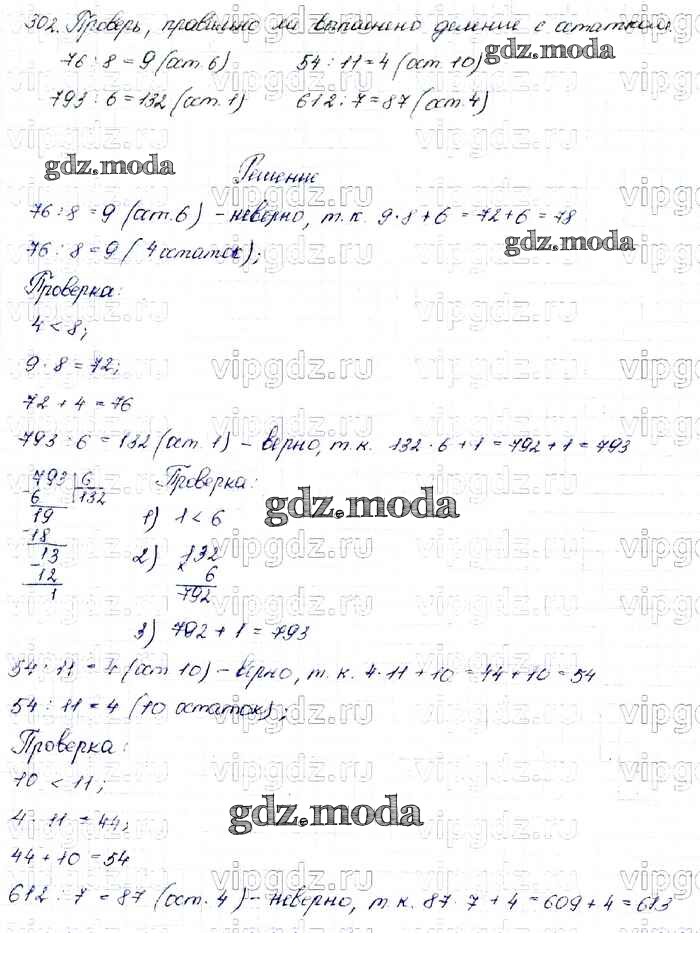 302. Проверь, правильно ли выполнено деление с остатком.
76 : 8 = 9 (ост. 6) 54 : 11 = 4 (ост. 10)
gdz.moda
793 : 6 = 132 (ост. 1) 612 : 7 = 87 (ост. 4)
gdz.moda
Решение
76 : 8 = 9 (ост. 6) – неверно, т.к. 9 · 8 + 6 = 72 + 6 = 78
76 : 8 = 9 (4 остаток);
gdz.moda
Проверка:
4 < 8;
9 · 8 = 72;
72 + 4 = 76
793 : 6 = 132 (ост. 1) – верно, т.к. 132 · 6 + 1 = 792 + 1 = 793
793 6 Проверка:
6 132
gdz.moda
19 1) 1 < 6
18
13 2) 132
12 6
1 792
3) 792 + 1 = 793
54 : 11 = 4 (ост 10) – верно, т.к. 4 · 11 + 10 = 44 + 10 = 54
54 : 11 = 4 (10 остаток);
Проверка:
10 < 11;
4 · 11 = 44;
gdz.moda
44 + 10 = 54
612 : 7 = 87 (ост. 4) – неверно, т.к. 87 · 7 + 4 = 609 + 4 = 613
vipgdz.ru